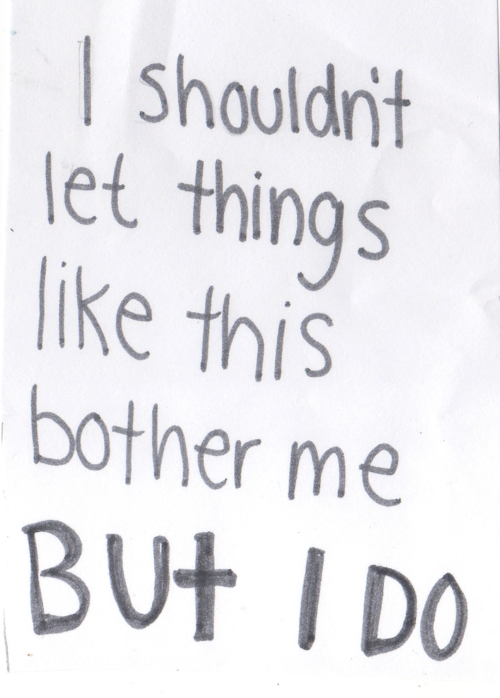 I shouldn't
let things
like this
bother me
BUt I DO